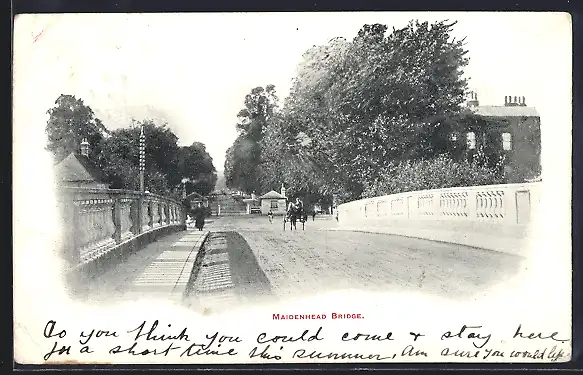 MAIDENHEAD BRIDGE.
Do you think you could come & stay here
for a short time this summer, Am sure you would